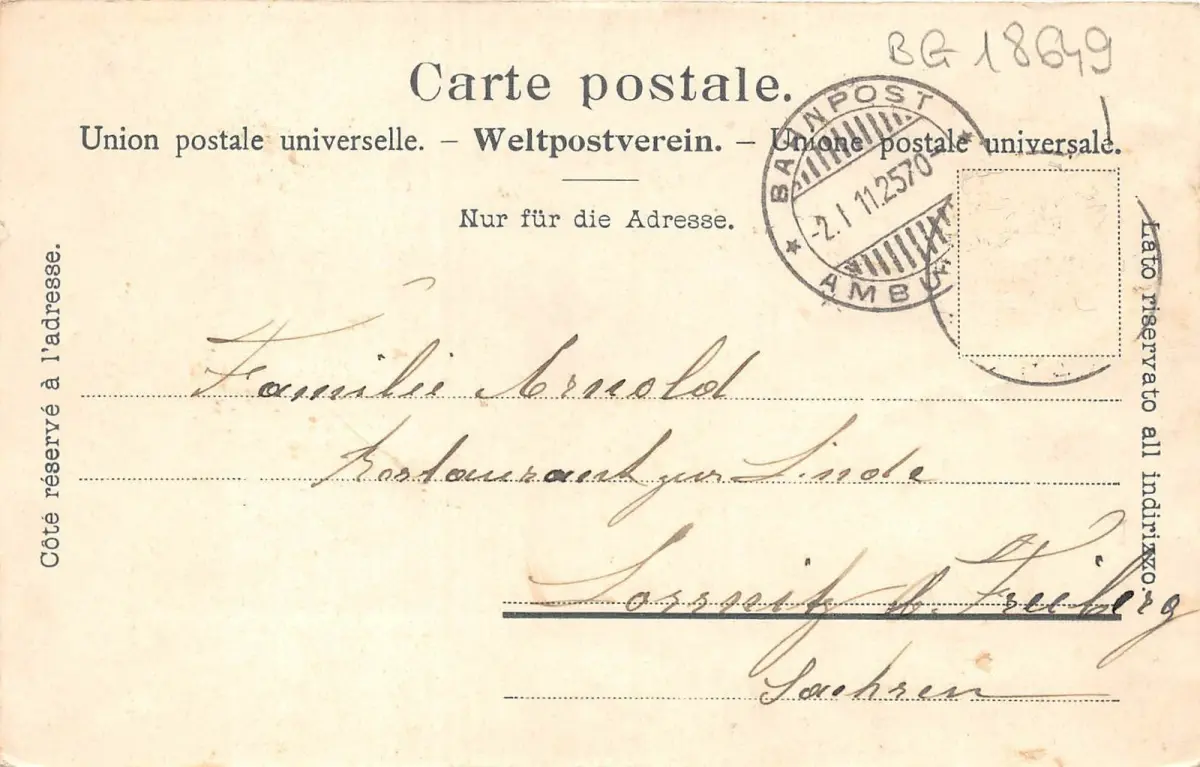 BG 18649
Carte postale.
Union postale universelle. – Weltpostverein. – Unione postale universale.
Nur für die Adresse.
BAHNPOST
-2.I 11.2570-
AMBU
Côté réservé à l'adresse.
Lato riservato all indirizzo.
Familie Arnold
Restaurant zur Linde
Lossnitz b. Freiberg
Sachsen